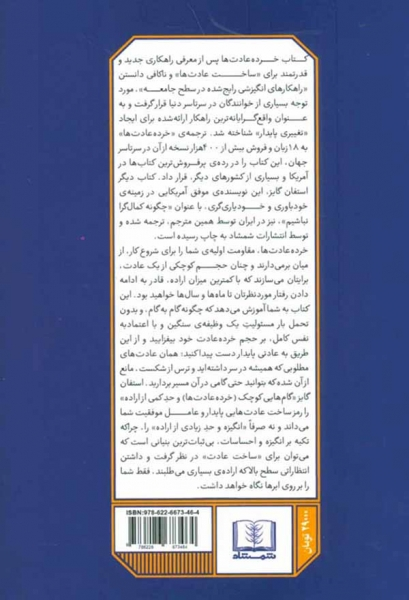 کتاب خرده‌عادت‌ها پس از معرفی راهکاری جدید و
قدرتمند برای «ساخت عادت‌ها» و ناکافی دانستن
«راهکارهای انگیزشی رایج شده در سطح جامعه»، مورد
توجه بسیاری از خوانندگان در سرتاسر دنیا قرار گرفت و به
عنوان واقع‌گرایانه‌ترین راهکار ارائه شده برای ایجاد
«تغییری پایدار» شناخته شد. ترجمه‌ی «خرده‌عادت‌ها»
به ۱۸ زبان و فروش بیش از ۴۰۰ هزار نسخه از آن در سرتاسر
جهان، این کتاب را در رده‌ی پرفروش‌ترین کتاب‌ها در
آمریکا و بسیاری از کشورهای دیگر، قرار داد. کتاب دیگر
استفان گایز، این نویسنده‌ی موفق آمریکایی در زمینه‌ی
خودباوری و خودیاری‌گری، با عنوان «چگونه کمال‌گرا
نباشیم»، نیز در ایران توسط همین مترجم، ترجمه شده و
توسط انتشارات شمشاد به چاپ رسیده است.
خرده‌عادت‌ها، مقاومت اولیه‌ی شما را برای شروع کار، از
میان برمی‌دارند و چنان حجم کوچکی از یک عادت،
برایتان می‌سازند که با کمترین میزان اراده، قادر به ادامه
دادن رفتار موردنظرتان تا ماه‌ها و سال‌ها خواهید بود. این
کتاب به شما آموزش می‌دهد که چگونه گام به گام، و بدون
تحمل بار مسئولیت یک وظیفه‌ی سنگین و با اعتماد به
نفس کامل، بر حجم خرده‌عادت خود بیفزایید و از این
طریق به عادتی پایدار دست پیدا کنید: همان عادت‌های
مطلوبی که همیشه در سر داشته‌اید و ترس از شکست، مانع
از آن شده که بتوانید حتی گامی در آن مسیر بردارید. استفان
گایز «گام‌هایی کوچک (خرده‌عادت‌ها) و حد کمی از اراده»
را رمز ساخت عادت‌هایی پایدار و عامل موفقیت شما
می‌داند و نه صرفاً «انگیزه و حد زیادی از اراده» را. چرا که
تکیه بر انگیزه و احساسات، بی‌ثبات‌ترین بنیانی است که
می‌توان برای «ساخت عادت» در نظر گرفت و داشتن
انتظاراتی سطح بالا که اراده‌ی بسیاری می‌طلبند، فقط شما
را بر روی ابرها نگاه خواهد داشت.
ISBN: 978-622-6673-46-4
9 786226 673464
شمشاد
۲۹۰۰۰ تومان